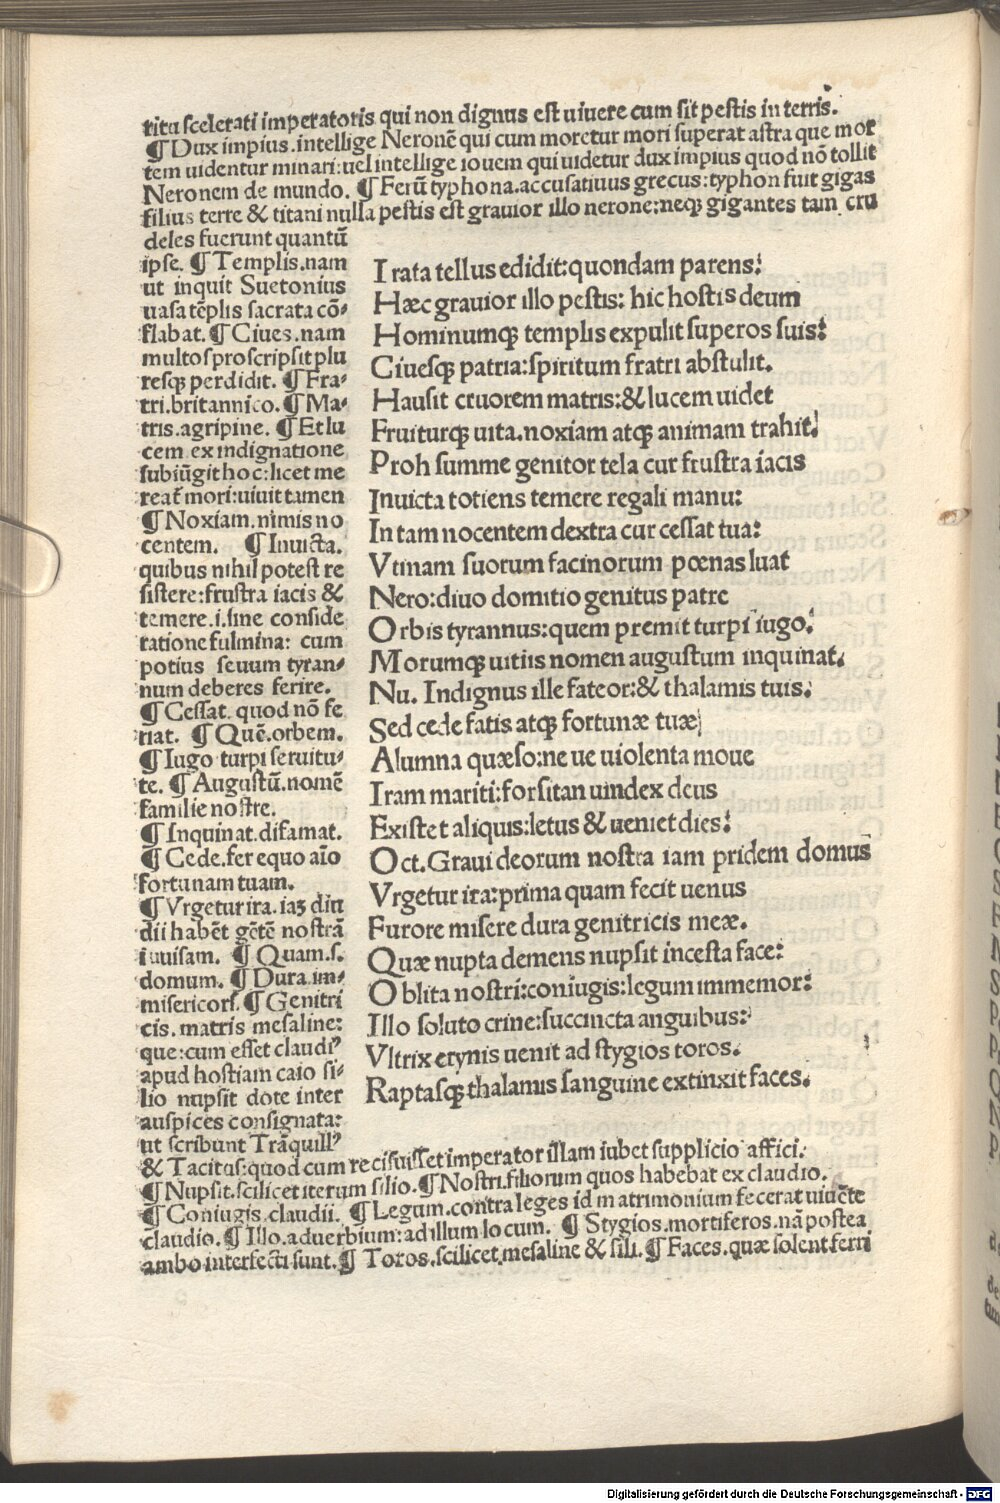 ritu scelerati imperatoris qui non dignus est uiuere cum sit pestis in terris.
¶ Dux impius. intellige Neronē qui cum moretur mori superat astra que mor
tem uidentur minari: uel intellige iouem qui uidetur dux impius quod nō tollit
Neronem de mundo. ¶ Ferū typhona. accusatiuus grecus: typhon fuit gigas
filius terre & titani nulla pestis est grauior illo nerone: neqꝫ gigantes tam cru
deles fuerunt quantū
ipse. ¶ Templis. nam
ut inquit Suetonius
uasa tēplis sacrata cō-
flabat. ¶ Ciues. nam
multos proscripsit plu
resqꝫ perdidit. ¶ Fra-
tri. britannico. ¶ Ma-
tris. agripine. ¶ Et lu
cem ex indignatione
subiūgit hoc: licet me
reat̃ mori: uiuit tamen
¶ Noxiam. nimis no
centem. ¶ Inuicta.
quibus nihil potest re
sistere: frustra iacis &
temere .i. sine conside
ratione fulmina: cum
potius seuum tyran-
num deberes ferire.
¶ Cessat. quod nō fe
riat. ¶ Quē. orbem.
¶ Iugo turpi seruitu-
te. ¶ Augustū. nomē
familie nostre.
¶ Inquinat. difamat.
¶ Cede. fer equo aīo
fortunam tuam.
¶ Vrgetur ira. iaꝫ diu
dii habēt gētē nostrā
iuuisam. ¶ Quam. s.
domum. ¶ Dura. im-
misericors. ¶ Genitri
cis. matris mesaline:
que: cum esset claudiꝰ
apud hostiam caio si-
lio nupsit dote inter
auspices consignata:
ut scribunt Trāquillꝰ
I rata tellus edidit: quondam parens:
Hæc grauior illo pestis: hic hostis deum
Hominumqꝫ templis expulit superos suis:
Ciuesqꝫ patria: spiritum fratri abstulit.
Hausit cruorem matris: & lucem uidet
Fruiturqꝫ uita. noxiam atqꝫ animam trahit.
Proh summe genitor tela cur frustra iacis
Inuicta totiens temere regali manu:
In tam nocentem dextra cur cessat tua:
Vtinam suorum facinorum pœnas luat
Nero: diuo domitio genitus patre
O rbis tyrannus: quem premit turpi iugo.
Morumqꝫ uitiis nomen augustum inquinat.
Nu. Indignus ille fateor: & thalamis tuis:
Sed cede fatis atqꝫ fortunæ tuæ
Alumna quæso: ne ue uiolenta moue
Iram mariti: forsitan uindex deus
Existet aliquis: letus & ueniet dies:
Oct. Graui deorum nostra iam pridem domus
Vrgetur ira: prima quam fecit uenus
Furore misere dura genitricis meæ.
Quæ nupta demens nupsit incesta face:
O blita nostri: coniugis: legum immemor:
Illo soluto crine: succincta anguibus:
Vltrix erynis uenit ad stygios toros.
Raptasqꝫ thalamis sanguine extinxit faces.
& Tacitus: quod cum reciuisset imperator illam iubet supplicio affici.
¶ Nupsit. scilicet iterum silio. ¶ Nostri. filiorum quos habebat ex claudio.
¶ Coniugis. claudii. ¶ Legum. contra leges id matrimonium fecerat uiuēte
claudio. ¶ Illo. aduerbium: ad illum locum. ¶ Stygios. mortiferos. nā postea
ambo interfecti sunt. ¶ Toros. scilicet mesaline & sili. ¶ Faces. quæ solent ferri
Digitalisierung gefördert durch die Deutsche Forschungsgemeinschaft - DFG